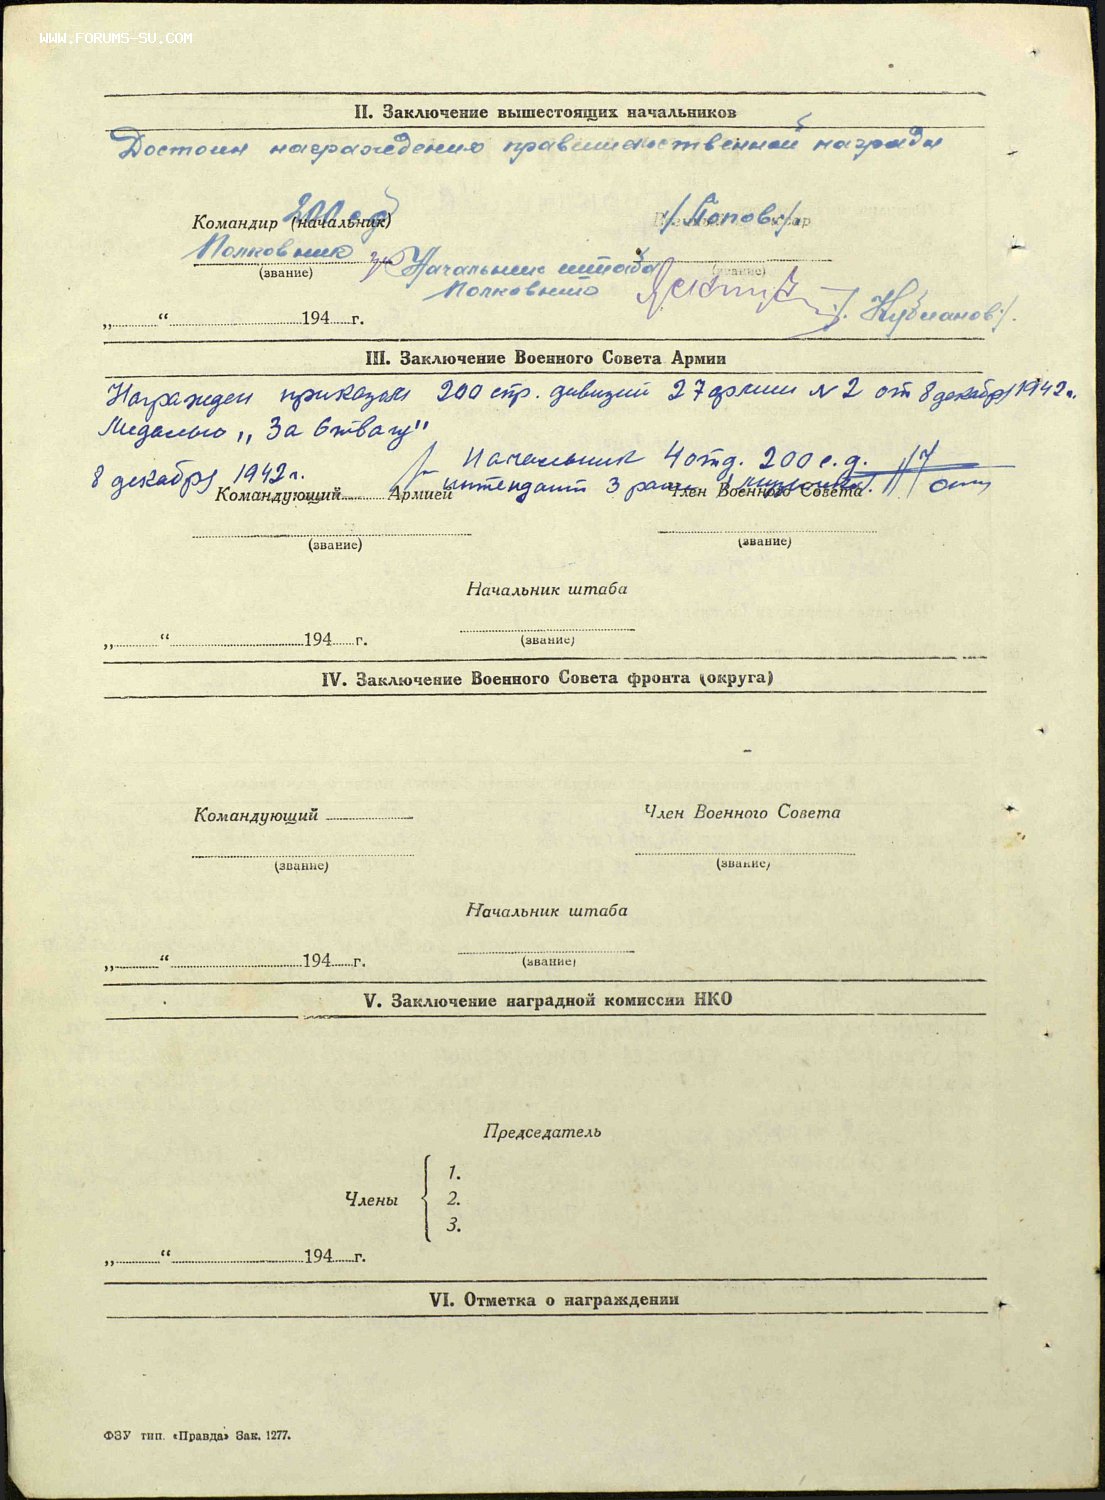 WWW.FORUMS-SU.COM
II. Заключение вышестоящих начальников
Достоин награждения правительственной награды
Командир (начальник) 200 сд /Попов/.
Полковник
(звание) (звание)
Начальник штаба
Полковник /. Кубланов /.
„ “ 194 г.
III. Заключение Военного Совета Армии
Награжден приказом 200 стр. дивизии 27 армии № 2 от 8 декабря 1942 г.
Медалью „За Отвагу"
Начальник 4 отд. 200 с.д.
8 декабря 1942 г. интендант 3 ранга
Командующий Армией Член Военного Совета
(звание) (звание)
Начальник штаба
(звание)
„ “ 194 г.
IV. Заключение Военного Совета фронта (округа)
Командующий Член Военного Совета
(звание) (звание)
Начальник штаба
(звание)
„ “ 194 г.
V. Заключение наградной комиссии НКО
Председатель
1.
Члены 2.
3.
„ “ 194 г.
VI. Отметка о награждении
ФЗУ тип. «Правда» Зак. 1277.